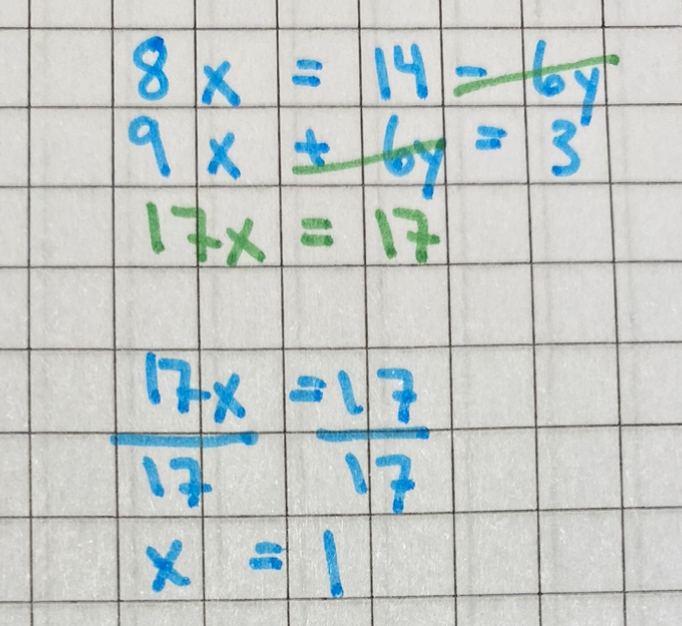 8x = 14 - 6y
9x + 6y = 3
17x = 17
17x = 17
17 17
x = 1